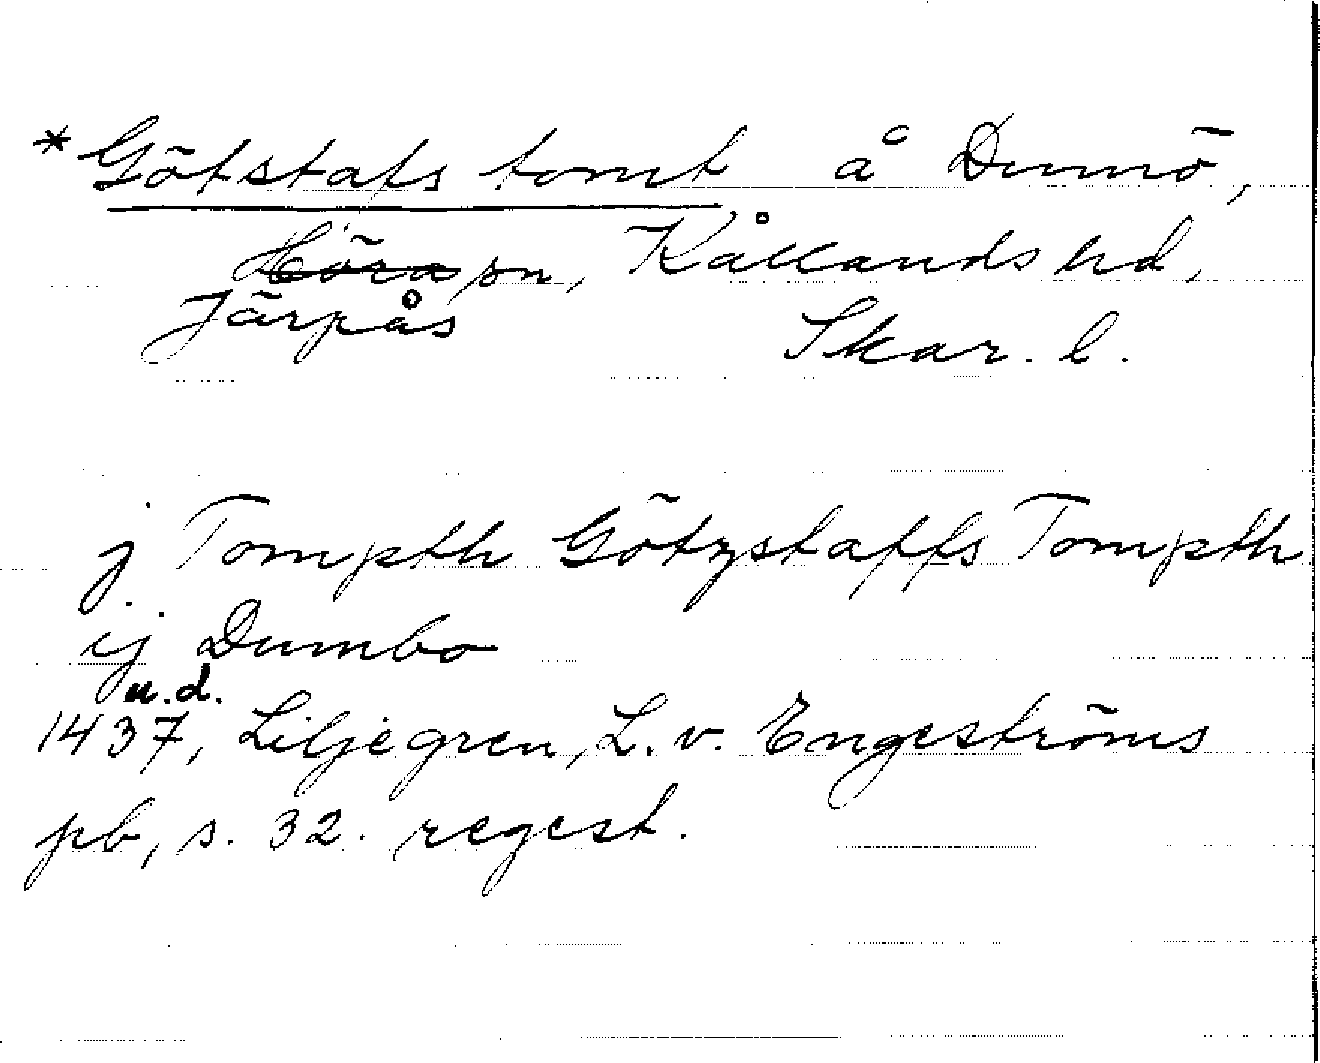 *Götstafs tomt å Dumö,
Höra sn, Kållands hd,
Järpås Skar. l.
j Tompth Götzstaffs Tompth
ij Dumbo
u.d.
1437, Liljegren, L. v. Engeströms
pb, s. 32. regest.